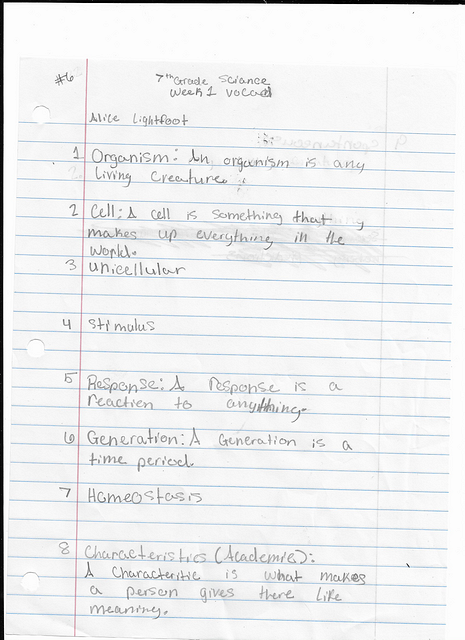 #6
7th Grade Science
Week 1 Vocab
Alice Lightfoot
1 Organism: An organism is any
living creature.
2 Cell: A cell is something that
makes up everything in the
world.
3 unicellular
4 Stimulus
5 Response: A response is a
reaction to anything.
6 Generation: A Generation is a
time period.
7 Homeostasis
8 Characteristics (Academic):
A Characteritic is what makes
a person gives there life
meaning.